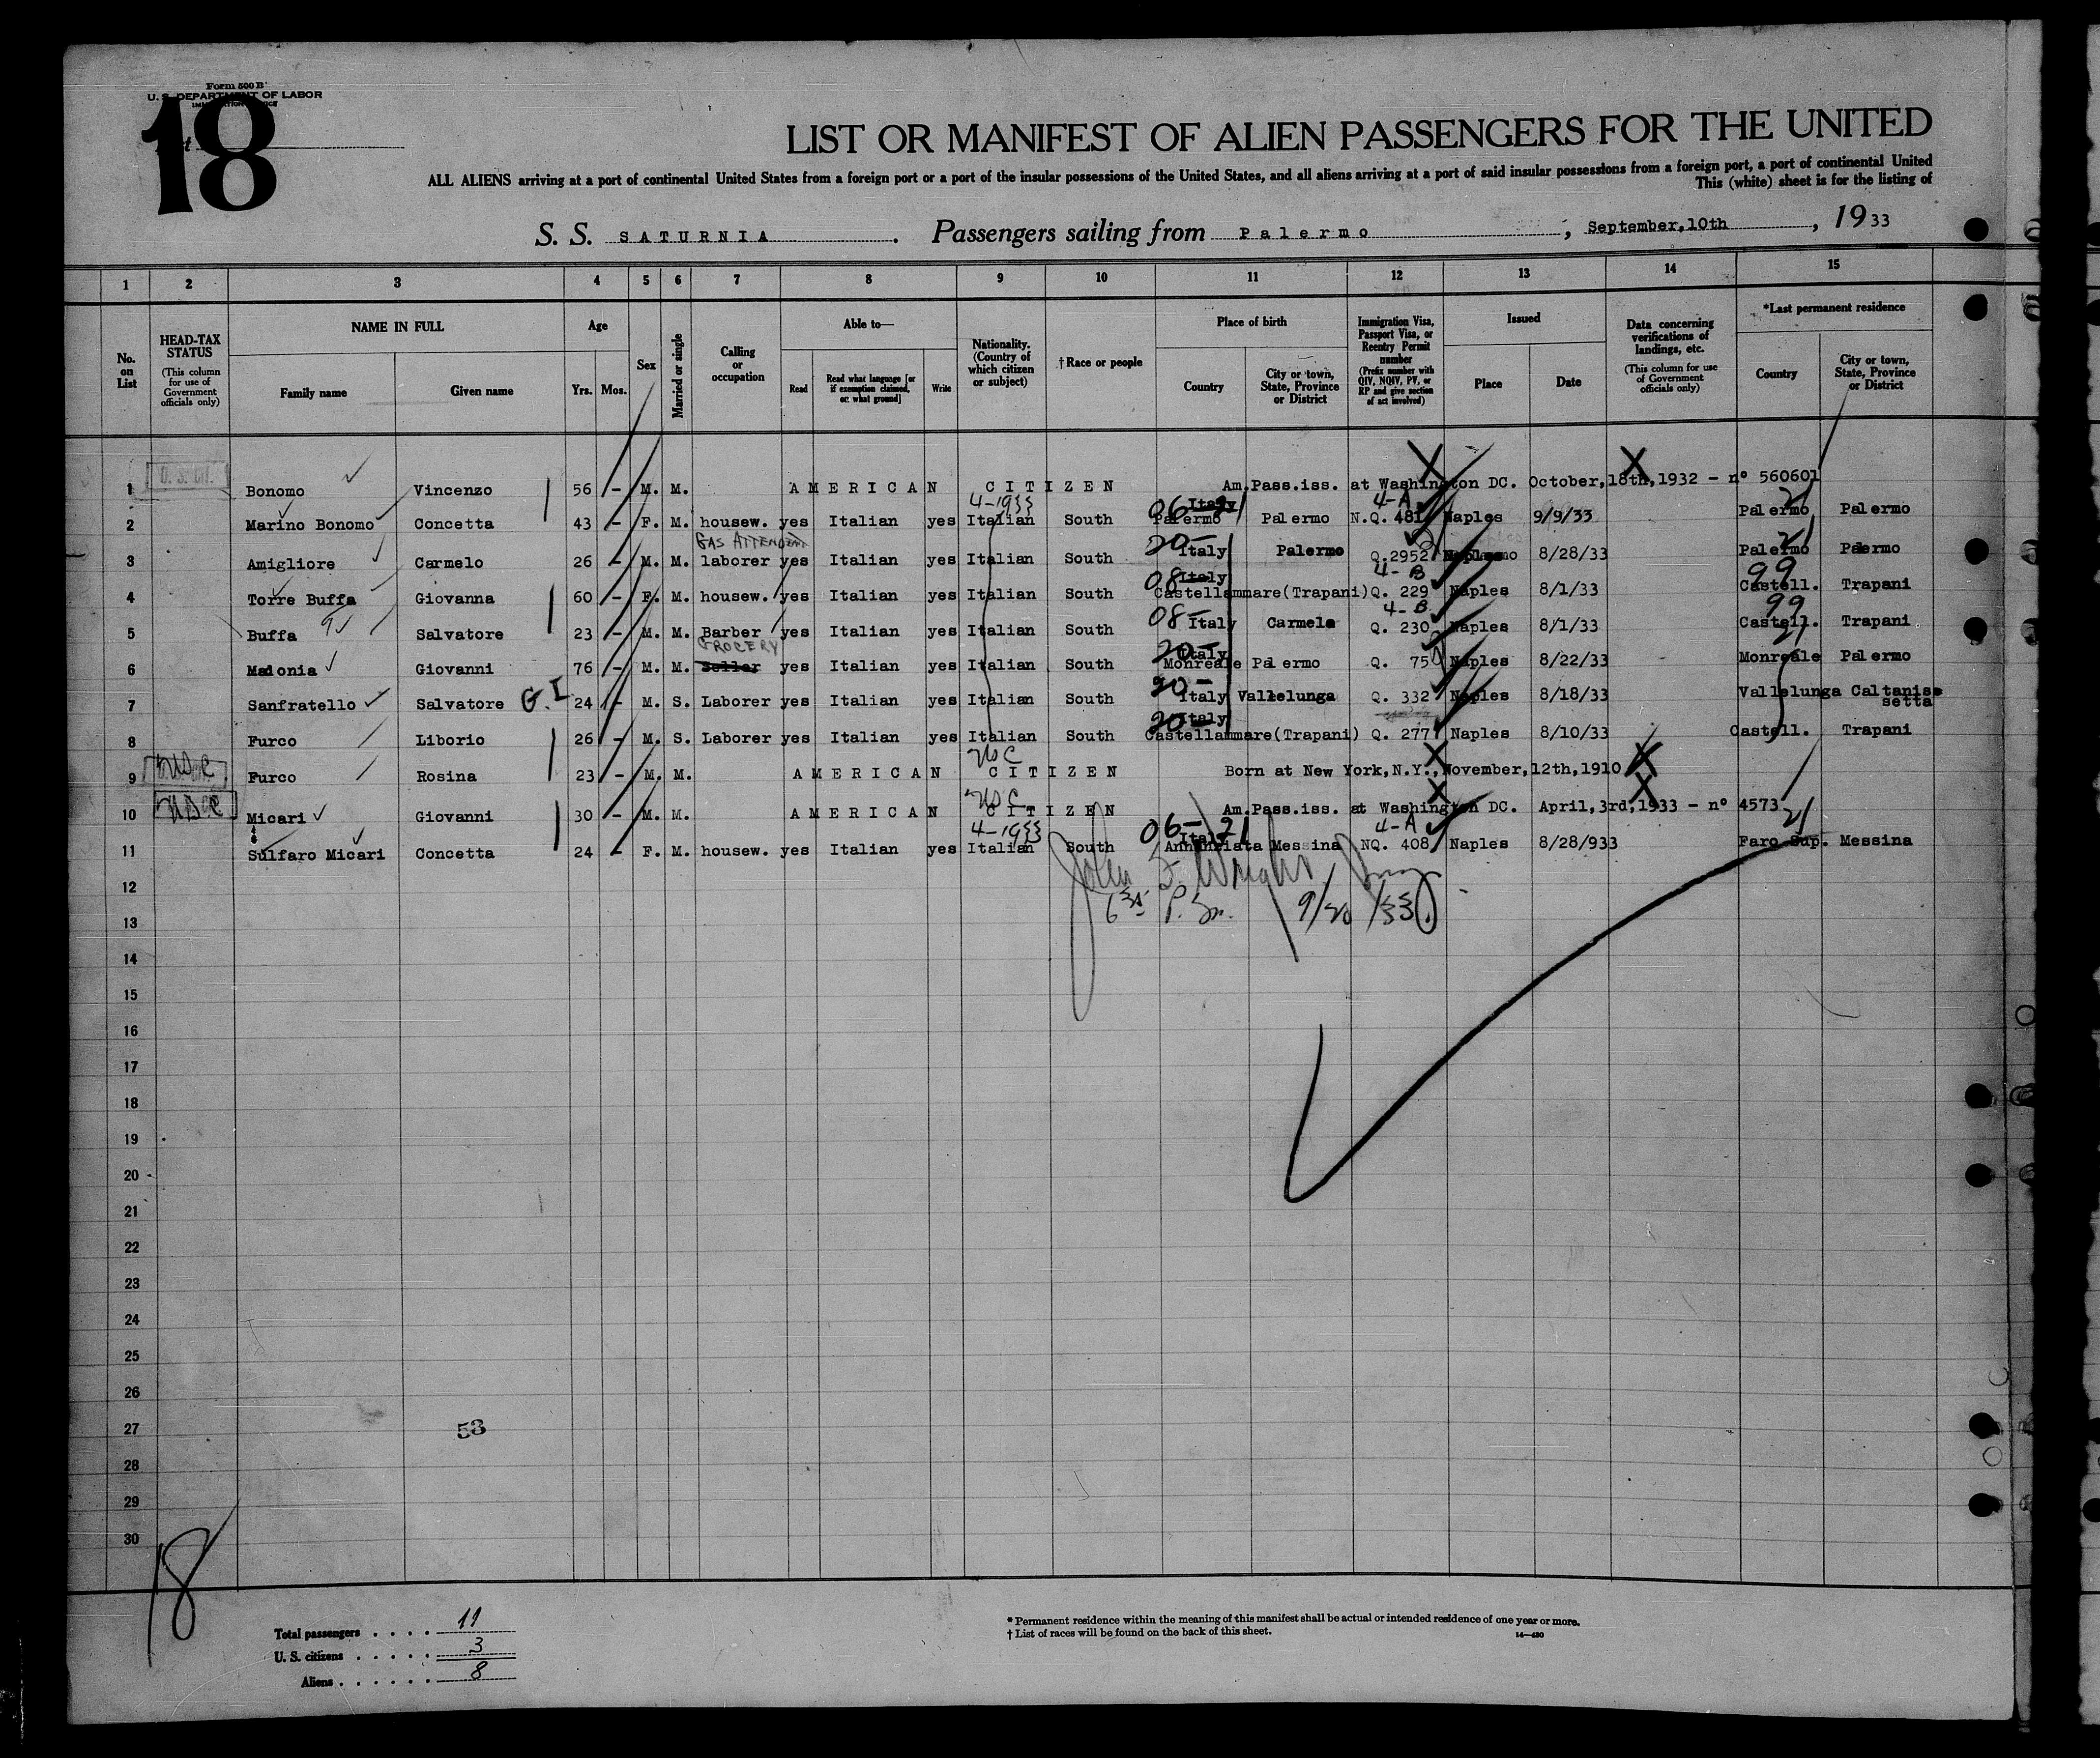 Form 500 B
U. S. DEPARTMENT OF LABOR
18
LIST OR MANIFEST OF ALIEN PASSENGERS FOR THE UNITED
ALL ALIENS arriving at a port of continental United States from a foreign port or a port of the insular possessions of the United States, and all aliens arriving at a port of said insular possessions from a foreign port, a port of continental United
This (white) sheet is for the listing of
S. S. SATURNIA . Passengers sailing from Palermo , September,10th , 1933
1 2 3 4 5 6 7 8 9 10 11 12 13 14 15
No. on List
HEAD-TAX STATUS (This column for use of Government officials only)
NAME IN FULL
Family name Given name
Age
Yrs. Mos.
Sex
Married or single
Calling or occupation
Able to—
Read Read what language [or if exemption claimed, on what ground] Write
Nationality. (Country of which citizen or subject)
†Race or people
Place of birth
Country City or town, State, Province or District
Immigration Visa, Passport Visa, or Reentry Permit number (Prefix number with QIV, NQIV, PV, or RP and give section of act involved)
Issued
Place Date
Data concerning verifications of landings, etc. (This column for use of Government officials only)
*Last permanent residence
Country City or town, State, Province or District
1 U. S. Cit. Bonomo Vincenzo 56 - M. M. AMERICAN CITIZEN Am.Pass.iss. at Washington DC. October,18th,1932 - n° 560601
4-1933 06-21 Italy 4-A 21
2 Marino Bonomo Concetta 43 - F. M. housew. yes Italian yes Italian South Palermo Palermo N.Q. 481 Naples 9/9/33 Palermo Palermo
GAS ATTENDANT 20- 21
3 Amigliore Carmelo 26 - M. M. laborer yes Italian yes Italian South Italy Palermo Q.2952 8/28/33 Palermo Palermo
08 Italy 4-B 99
4 Torre Buffa Giovanna 60 - F. M. housew. yes Italian yes Italian South Castellammare(Trapani) Q. 229 Naples 8/1/33 Castell. Trapani
08- 4-B 99
5 Buffa Salvatore 23 - M. M. Barber yes Italian yes Italian South Italy Carmele Q. 230 Naples 8/1/33 Castell. Trapani
GROCERY 20- Italy 21
6 Madonia Giovanni 76 - M. M. Seller yes Italian yes Italian South Monreale Palermo Q. 750 Naples 8/22/33 Monreale Palermo
20-
7 Sanfratello Salvatore G. I 24 - M. S. Laborer yes Italian yes Italian South Italy Vallelunga Q. 332 Naples 8/18/33 Vallelunga Caltanissetta
20- Italy
8 Furco Liborio 26 - M. S. Laborer yes Italian yes Italian South Castellammare(Trapani) Q. 277 Naples 8/10/33 Castell. Trapani
USC
9 USC Furco Rosina 23 - M. M. AMERICAN CITIZEN Born at New York,N.Y.,November,12th,1910
USC
10 USC Micari Giovanni 30 - M. M. AMERICAN CITIZEN Am.Pass.iss. at Washington DC. April,3rd,1933 - n° 4573
4-1933 06-21 Italy 4-A 21
11 Sulfaro Micari Concetta 24 - F. M. housew. yes Italian yes Italian South Annunziata Messina NQ. 408 Naples 8/28/933 Faro Sup. Messina
John F. Wright
12
9/20/33
13
14
15
16
17
18
19
20
21
22
23
24
25
26
27 53
28
29
30
18
Total passengers . . . . 11
U. S. citizens . . . . . 3
Aliens . . . . . . 8
* Permanent residence within the meaning of this manifest shall be actual or intended residence of one year or more.
† List of races will be found on the back of this sheet.
14—430